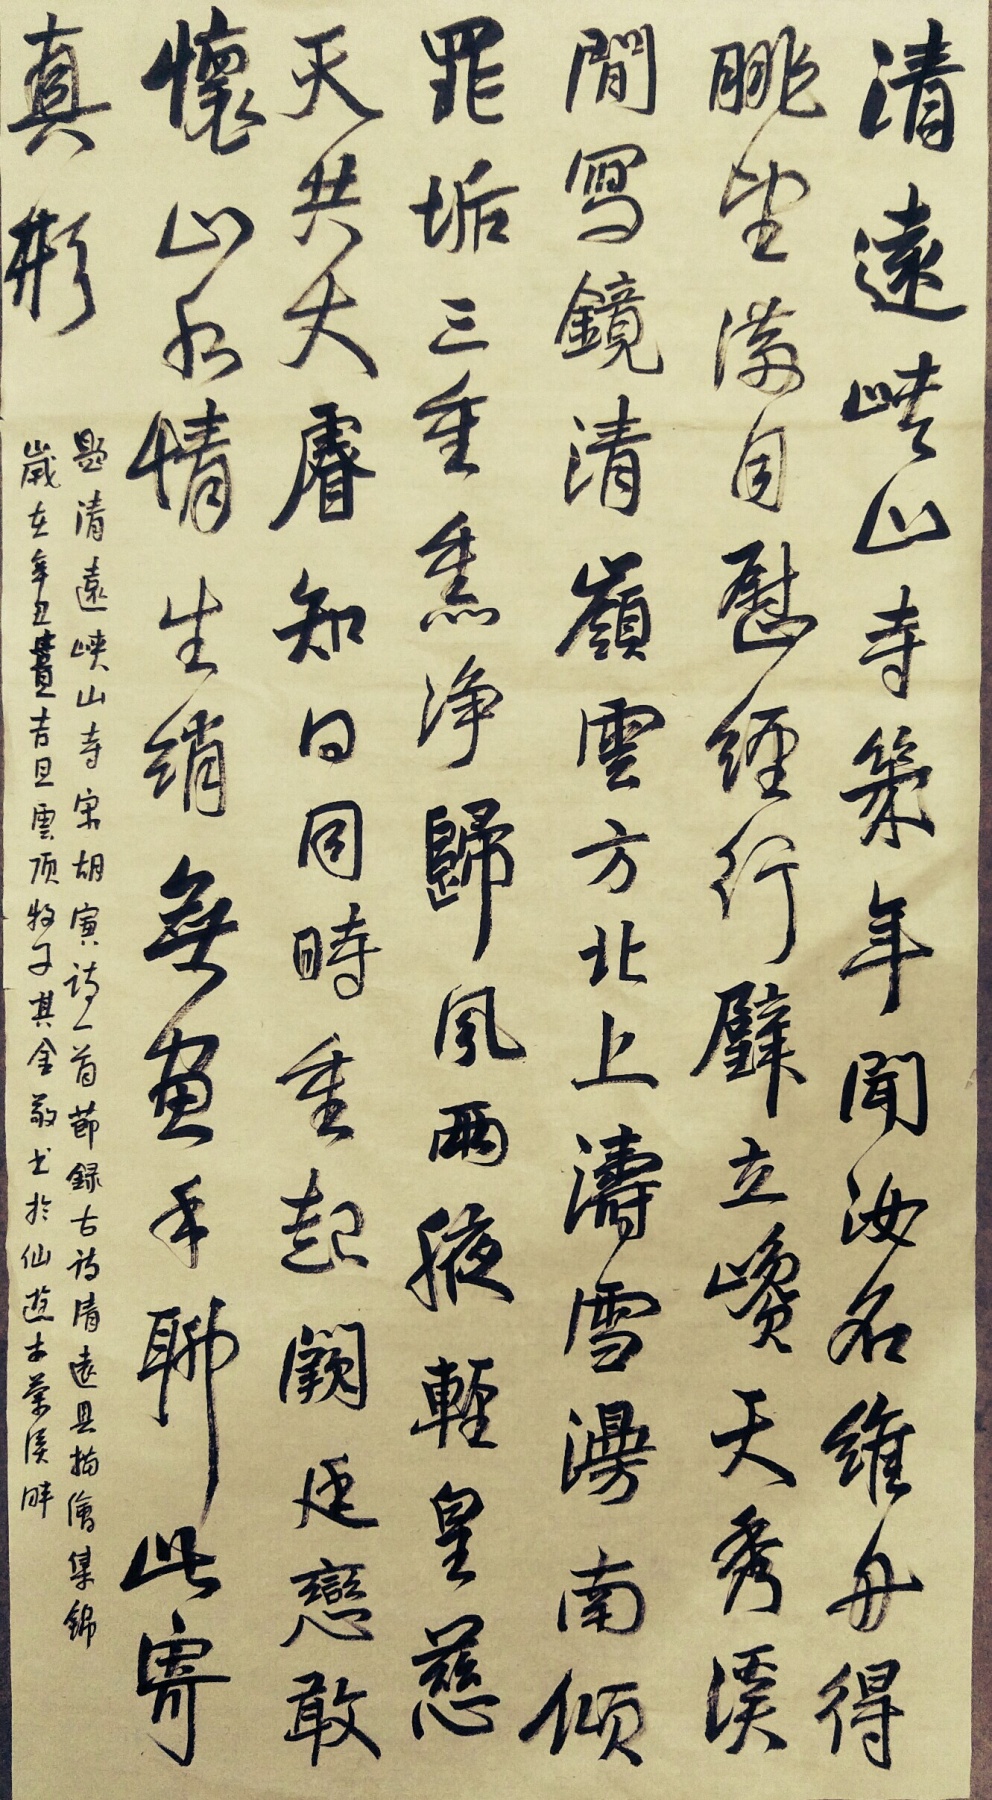 清遠峽山寺策年聞汝名維舟得
眺望滿目慰經行壁立巉天秀溪
間寫鏡清嶺雲方北上濤雪漫南傾
罪垢三重熏淨歸風兩腋輕皇慈
天共大睿知日同時重起闕廷戀敢
懷山水情生綃無畫手聊此寄
真形
題清遠峽山寺宋胡寅詩一首節錄古詩清遠且描繪集錦
歲在辛丑 吉旦雲頂牧子其金敬書於仙遊木蘭溪畔